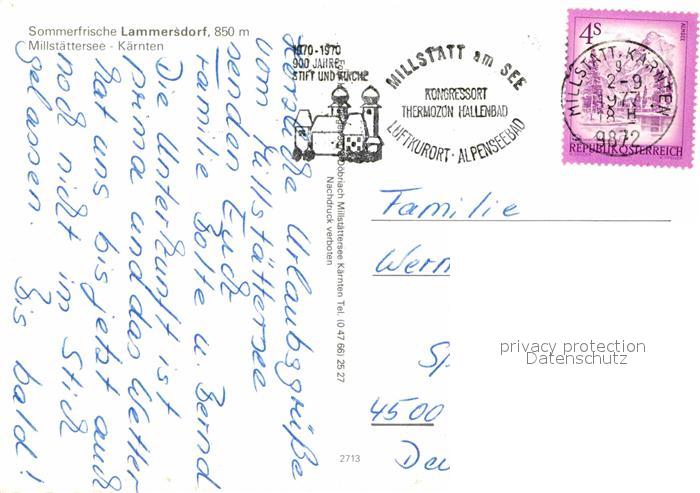 Sommerfrische Lammersdorf, 850 m
Millstättersee - Kärnten
1070-1970
900 JAHRE
STIFT UND KIRCHE
MILLSTATT am SEE
KONGRESSORT
THERMOZON HALLENBAD
LUFTKURORT - ALPENSEEBAD
4S
ALMSEE
REPUBLIK ÖSTERREICH
MILLSTATT, KÄRNTEN
2-9
1977
9872
Herzliche Urlaubsgrüße
vom Millstättersee
senden Euch
Familie Bolte u. Bernd
Die Unterkunft ist
prima und das Wetter
hat uns bis jetzt auch
noch nicht im Stich
gelassen.
Bis bald!
Döbriach Millstättersee Kärnten Tel. (0 47 66) 25 27
Nachdruck verboten
Familie
Wern
Sp
4500
2713
privacy protection
Datenschutz